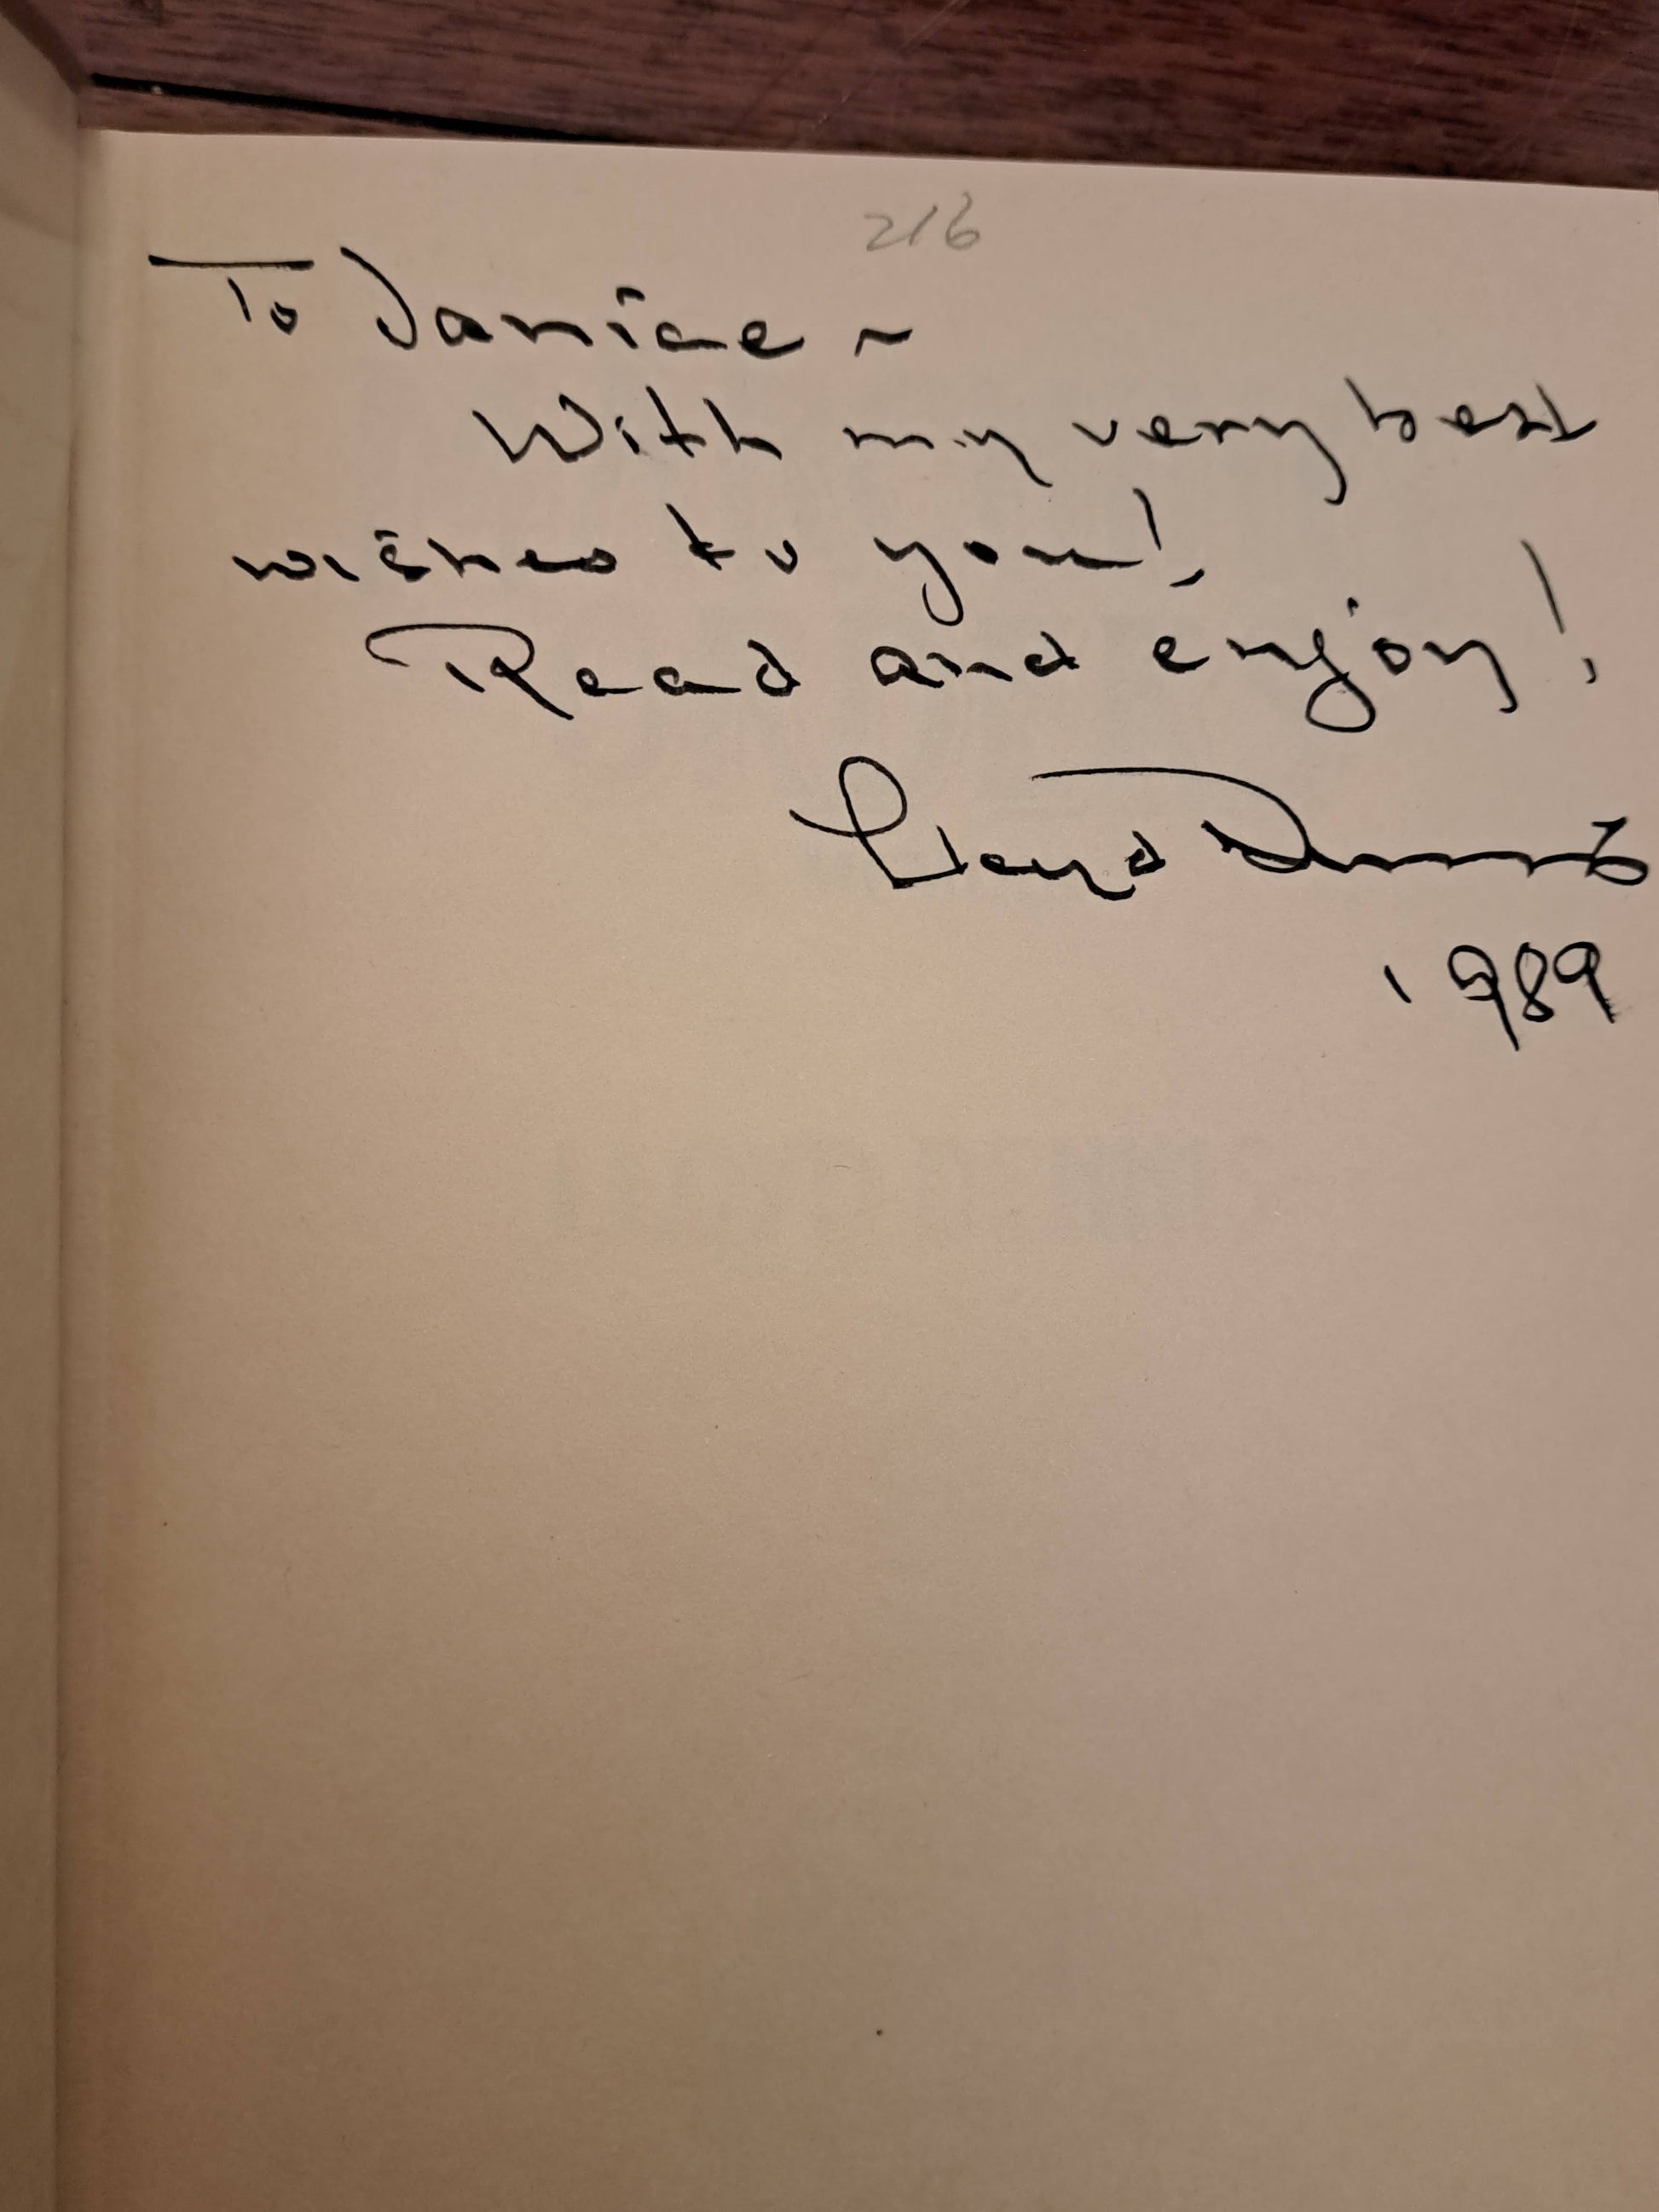 216
To Janice ~
With my very best
wishes to you!
Read and enjoy!
Lloyd
1989